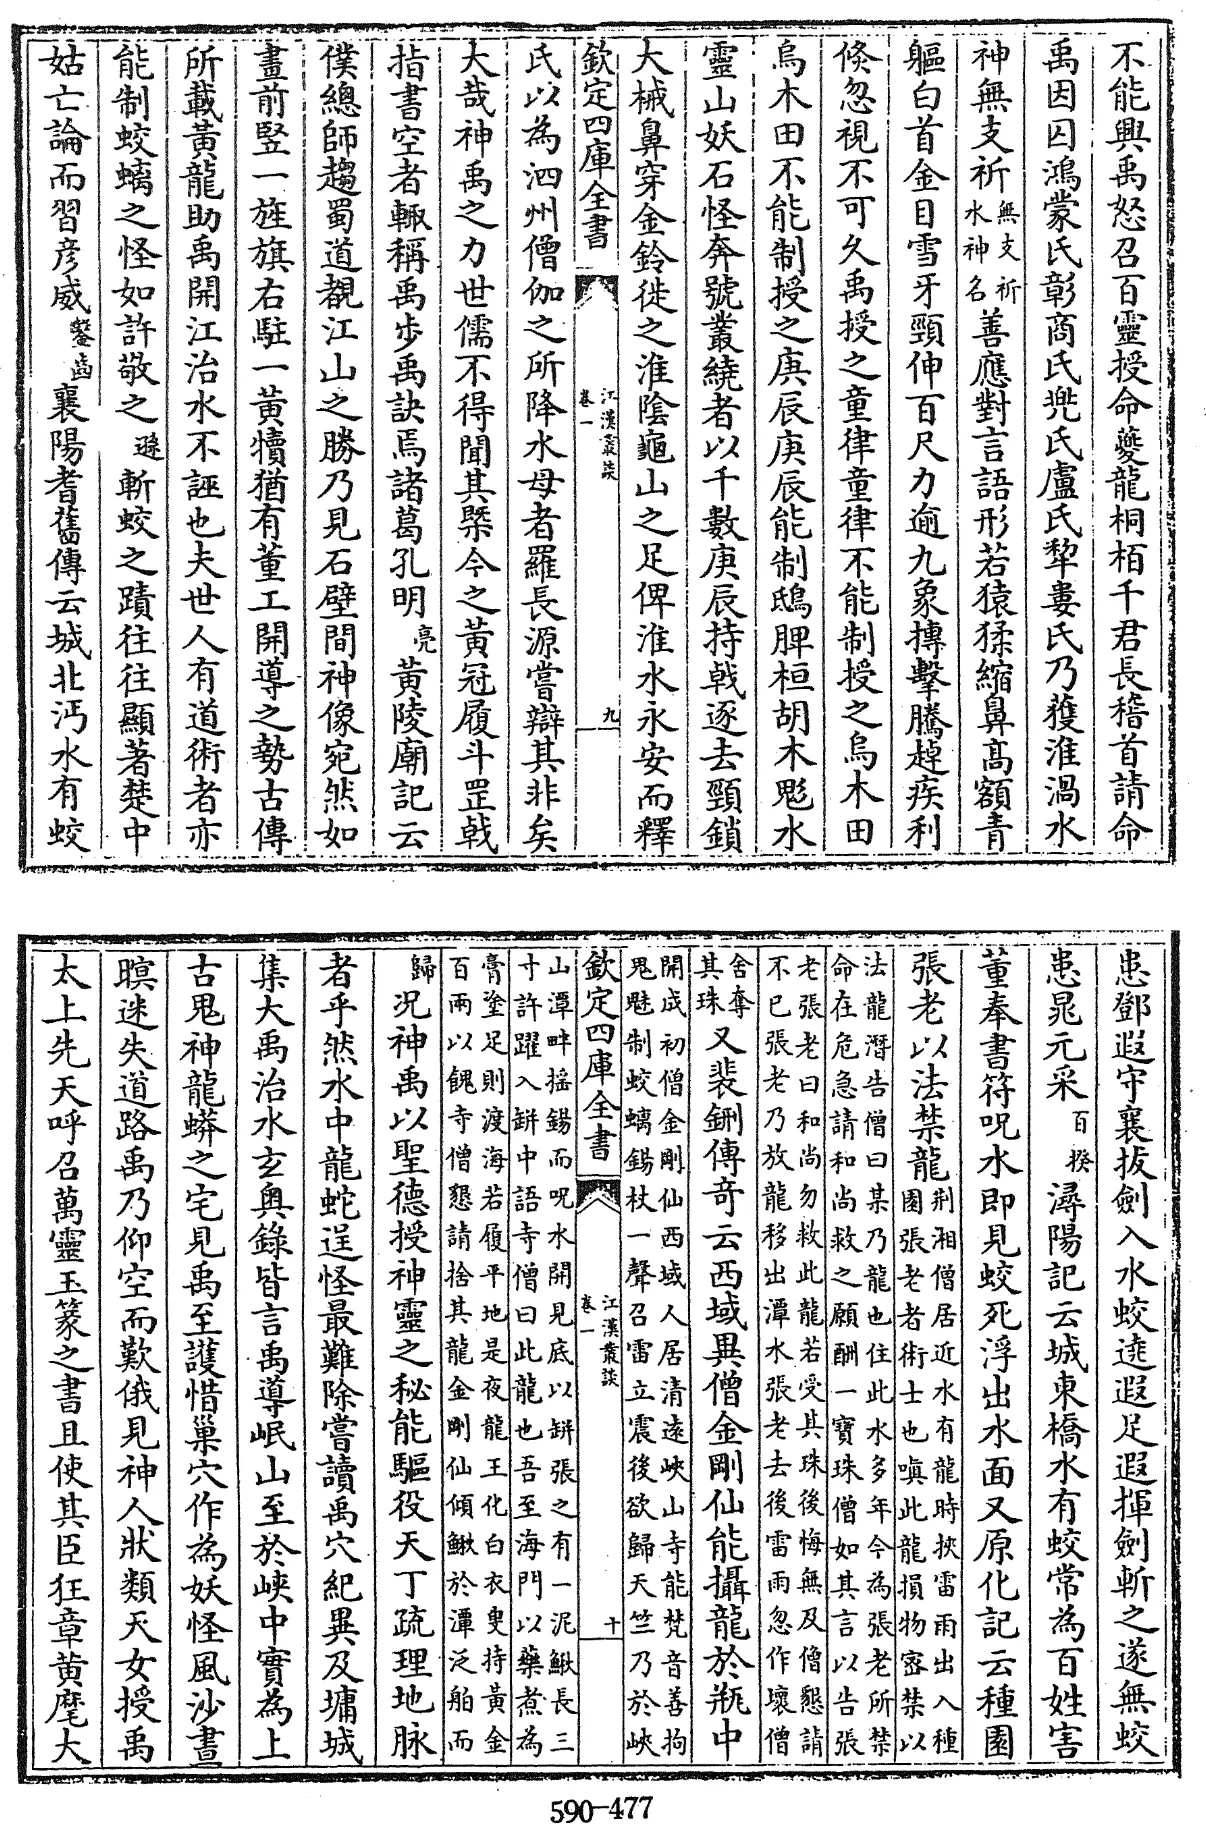 不能興禹怒召百靈授命夔龍桐栢千君長稽首請命
禹因囚鴻蒙氏彰商氏兠氏盧氏犂婁氏乃獲淮渦水
神無支祈無支祈水神名善應對言語形若猿猱縮鼻高額青
軀白首金目雪牙頸伸百尺力逾九象搏擊騰趠疾利
倐忽視不可久禹授之童律童律不能制授之烏木田
烏木田不能制授之庚辰庚辰能制鴟脾桓胡木鬽水
靈山妖石怪奔號叢繞者以千數庚辰持戟逐去頸鎖
大械鼻穿金鈴徙之淮陰龜山之足俾淮水永安而釋
欽定四庫全書
江漢叢談
卷一
九
氏以為泗州僧伽之所降水母者羅長源嘗辯其非矣
大哉神禹之力世儒不得聞其槩今之黃冠履斗罡戟
指書空者輙稱禹步禹訣焉諸葛孔明亮黃陵廟記云
僕總師趨蜀道覩江山之勝乃見石壁間神像宛然如
畫前竪一旌旗右駐一黃犢猶有董工開導之勢古傳
所載黃龍助禹開江治水不誣也夫世人有道術者亦
能制蛟螭之怪如許敬之遜斬蛟之蹟往往顯著楚中
姑亡論而習彥威鑿齒襄陽耆舊傳云城北沔水有蛟
患鄧遐守襄拔劍入水蛟遶遐足遐揮劍斬之遂無蛟
患晁元采百揆潯陽記云城東橋水有蛟常為百姓害
董奉書符呪水即見蛟死浮出水面又原化記云種園
張老以法禁龍荆湘僧居近水有龍時挾雷雨出入種
園張老者術士也嗔此龍損物密禁以
法龍潛告僧曰某乃龍也住此水多年今為張老所禁
命在危急請和尚救之願酬一寶珠僧如其言以告張
老張老曰和尚勿救此龍若受其珠後悔無及僧懇請
不已張老乃放龍移出潭水張老去後雷雨忽作壞僧
舍奪
其珠又裴鉶傳奇云西域異僧金剛仙能攝龍於瓶中
開成初僧金剛仙西域人居清遠峽山寺能梵音善拘
鬼魅制蛟螭錫杖一聲召雷立震後欲歸天竺乃於峽
欽定四庫全書
江漢叢談
卷一
十
山潭畔搖錫而呪水開見底以缾張之有一泥鰍長三
寸許躍入缾中語寺僧曰此龍也吾至海門以藥煮為
膏塗足則渡海若履平地是夜龍王化白衣叟持黃金
百兩以餽寺僧懇請捨其龍金剛仙傾鰍於潭泛舶而
歸况神禹以聖德授神靈之秘能驅役天丁疏理地脉
者乎然水中龍蛇逞怪最難除嘗讀禹穴紀異及墉城
集大禹治水玄奥錄皆言禹導岷山至於峽中實為上
古鬼神龍蟒之宅見禹至護惜巢穴作為妖怪風沙晝
暝迷失道路禹乃仰空而歎俄見神人狀類天女授禹
太上先天呼召萬靈玉篆之書且使其臣狂章黃麾大
590-477